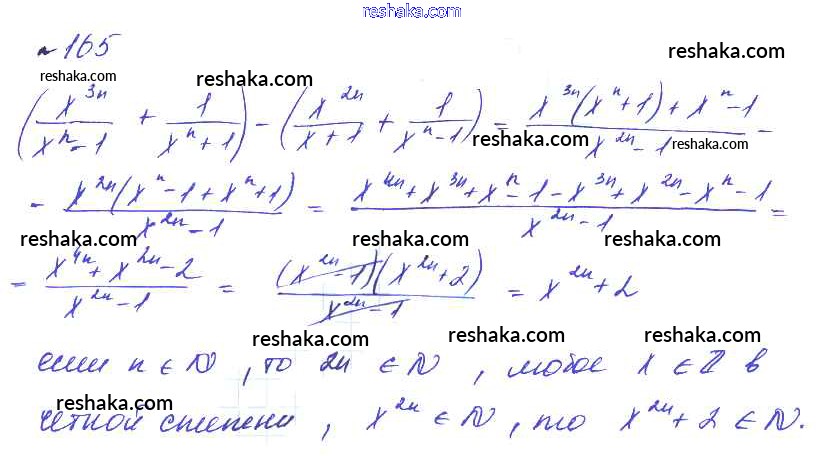 reshaka.com
№ 165
reshaka.com reshaka.com reshaka.com
(x^{3n}/(x^n - 1) + 1/(x^n + 1)) - (x^{2n}/(x + 1) + 1/(x^n - 1)) = (x^{3n}(x^n + 1) + x^n - 1)/(x^{2n} - 1) -
reshaka.com reshaka.com
- x^{2n}(x^n - 1 + x^n + 1)/(x^{2n} - 1) = (x^{4n} + x^{3n} + x^n - 1 - x^{3n} + x^{2n} - x^n - 1)/(x^{2n} - 1) =
reshaka.com reshaka.com reshaka.com
= (x^{4n} + x^{2n} - 2)/(x^{2n} - 1) = (x^{2n} - 1)(x^{2n} + 2)/(x^{2n} - 1) = x^{2n} + 2
reshaka.com reshaka.com reshaka.com
если n ∈ N, то 2n ∈ N, любое x ∈ Z в
reshaka.com
четной степени, x^{2n} ∈ N, то x^{2n} + 2 ∈ N.
reshaka.com reshaka.com reshaka.com